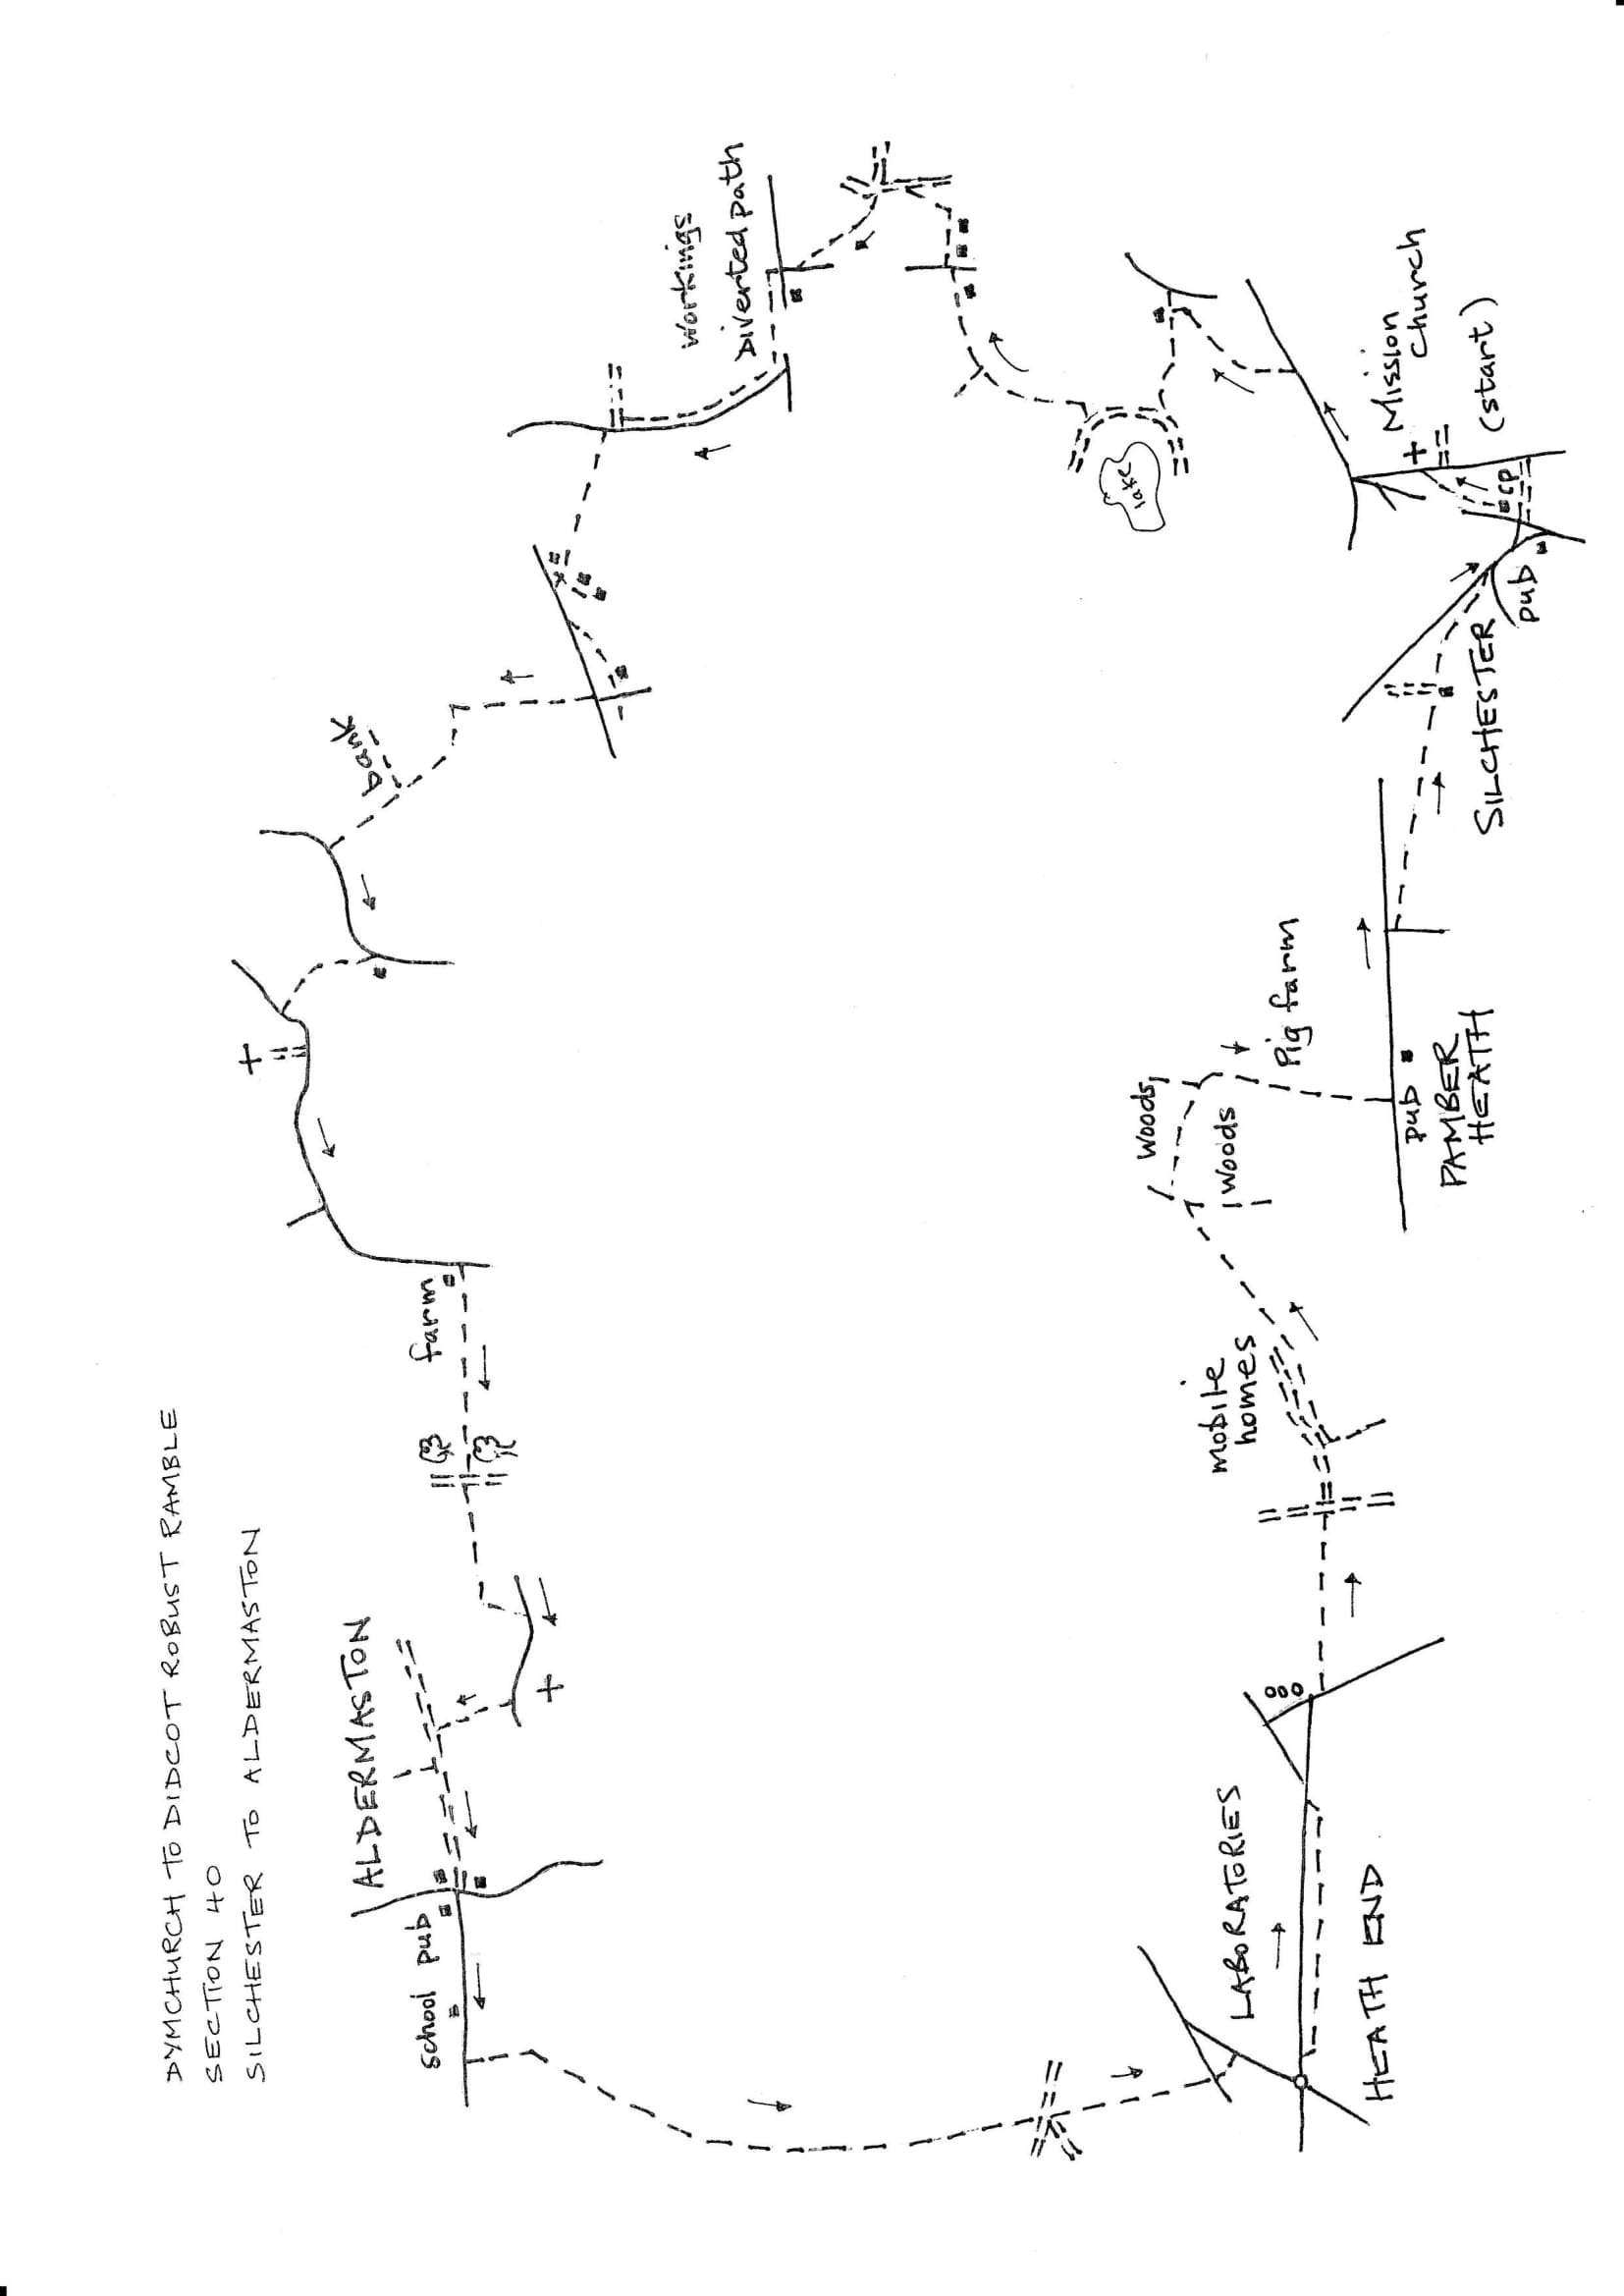 DYMCHURCH TO DIDCOT ROBUST RAMBLE
SECTION 40
SILCHESTER TO ALDERMASTON
ALDERMASTON
school pub
farm
bank
Workings
Diverted path
lake
Woods
Woods
mobile
homes
LABORATORIES
Pig farm
HEATH END
pub
PAMBER
HEATH
SILCHESTER
pub
cp
Mission
Church
(start)